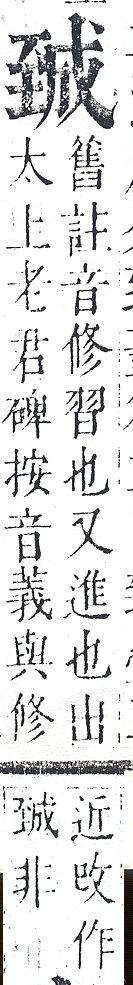 臹
舊註音修習也又進也出
太上老君碑按音義與修
近攺作
臹非